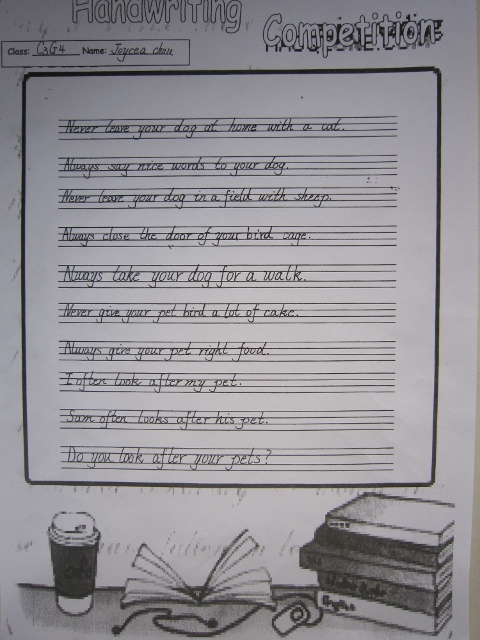 Handwriting
Competition
Class: C3G4 Name: Joycea chan
Never leave your dog at home with a cat.
Always say nice words to your dog.
Never leave your dog in a field with sheep.
Always close the door of your bird cage.
Always take your dog for a walk.
Never give your pet bird a lot of cake.
Always give your pet right food.
I often look after my pet.
Sam often looks after his pet.
Do you look after your pets?